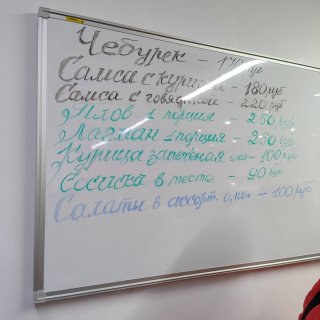 Чебурек - 190 руб
Самса с курицей - 180 руб
Самса с говядиной - 220 руб
Плов 1 порция - 250 руб
Лагман 1 порция - 250 руб
Курица запеченая - 100 руб
Сосиска в тесте - 90 руб
Салаты в ассорт. - 100 руб